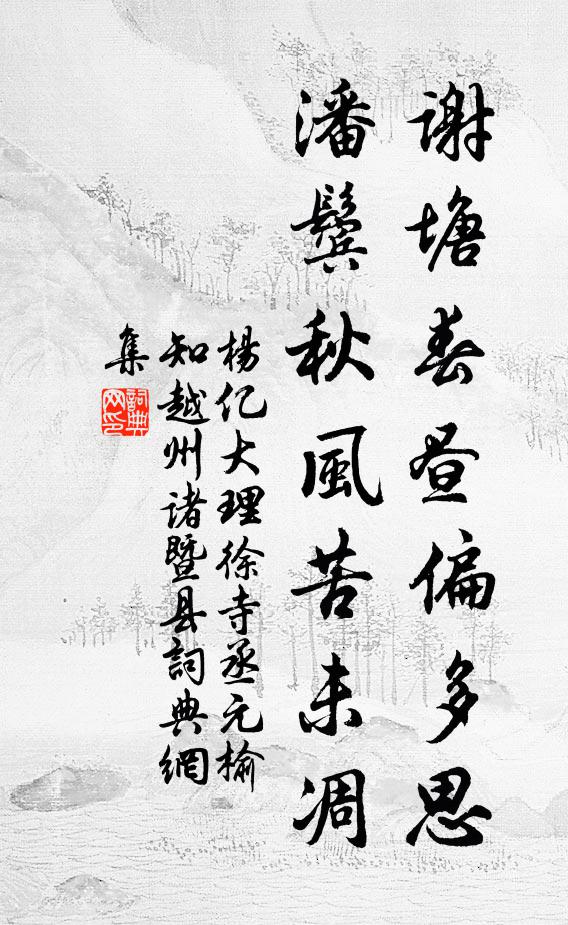 謝塘春昼偏多思
潘鬢秋風苦未凋
楊亿大理徐寺丞元榆
知越州诸暨县詞典網
集
詞典
网印